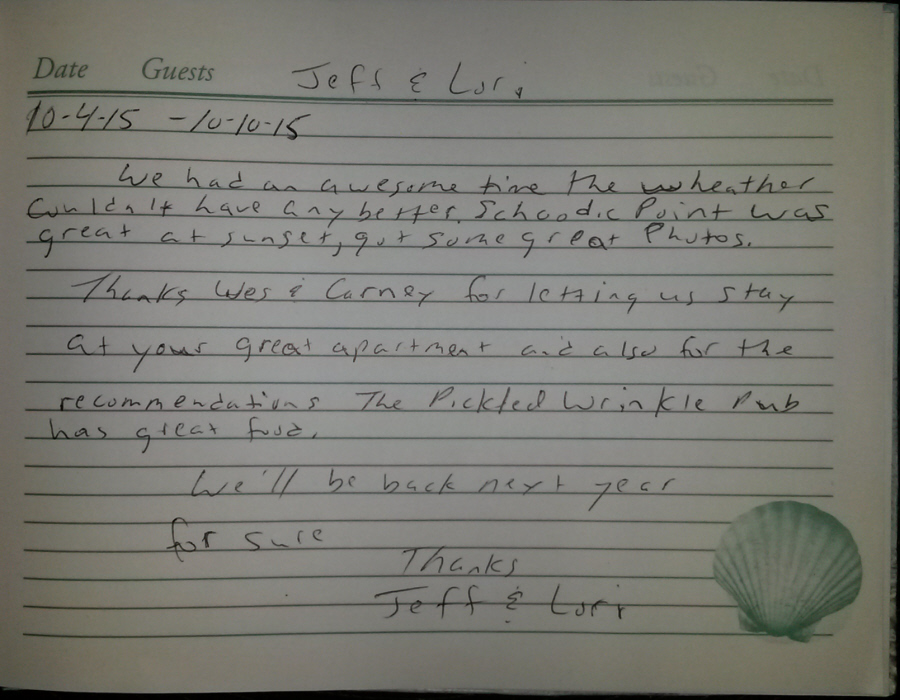 Date Guests Jeff & Lori
10-4-15 - 10-10-15
We had an awesome time the wheather
couldn't have any better. Schoodic Point was
great at sunset, got some great Photos.
Thanks Wes & Carney for letting us stay
at your great apartment and also for the
recommendations The Pickled Wrinkle Pub
has great food.
We'll be back next year
for sure
Thanks
Jeff & Lori